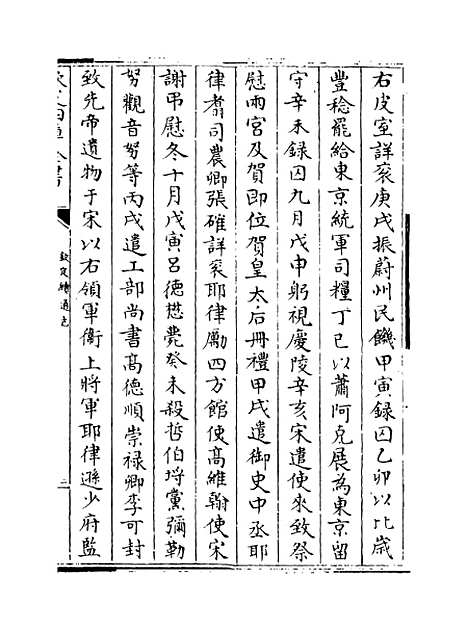 右皮室詳袞庚戌振蔚州民饑甲寅録囚乙卯以比歲
豐稔罷給東京統軍司糧丁巳以蕭阿克展為東京留
守辛未録囚九月戊申躬視慶陵辛亥宋遣使來致祭
慰兩宫及賀即位賀皇太后冊禮甲戌遣御史中丞耶
律翥司農卿張確詳袞耶律勵四方館使髙維翰使宋
謝弔慰冬十月戊寅吕德懋薨癸未殺哲伯埒黨彌勒
努觀音努等丙戌遣工部尚書髙德順崇禄卿李可封
致先帝遺物于宋以右領軍衛上將軍耶律遜少府監
欽定續通志
二